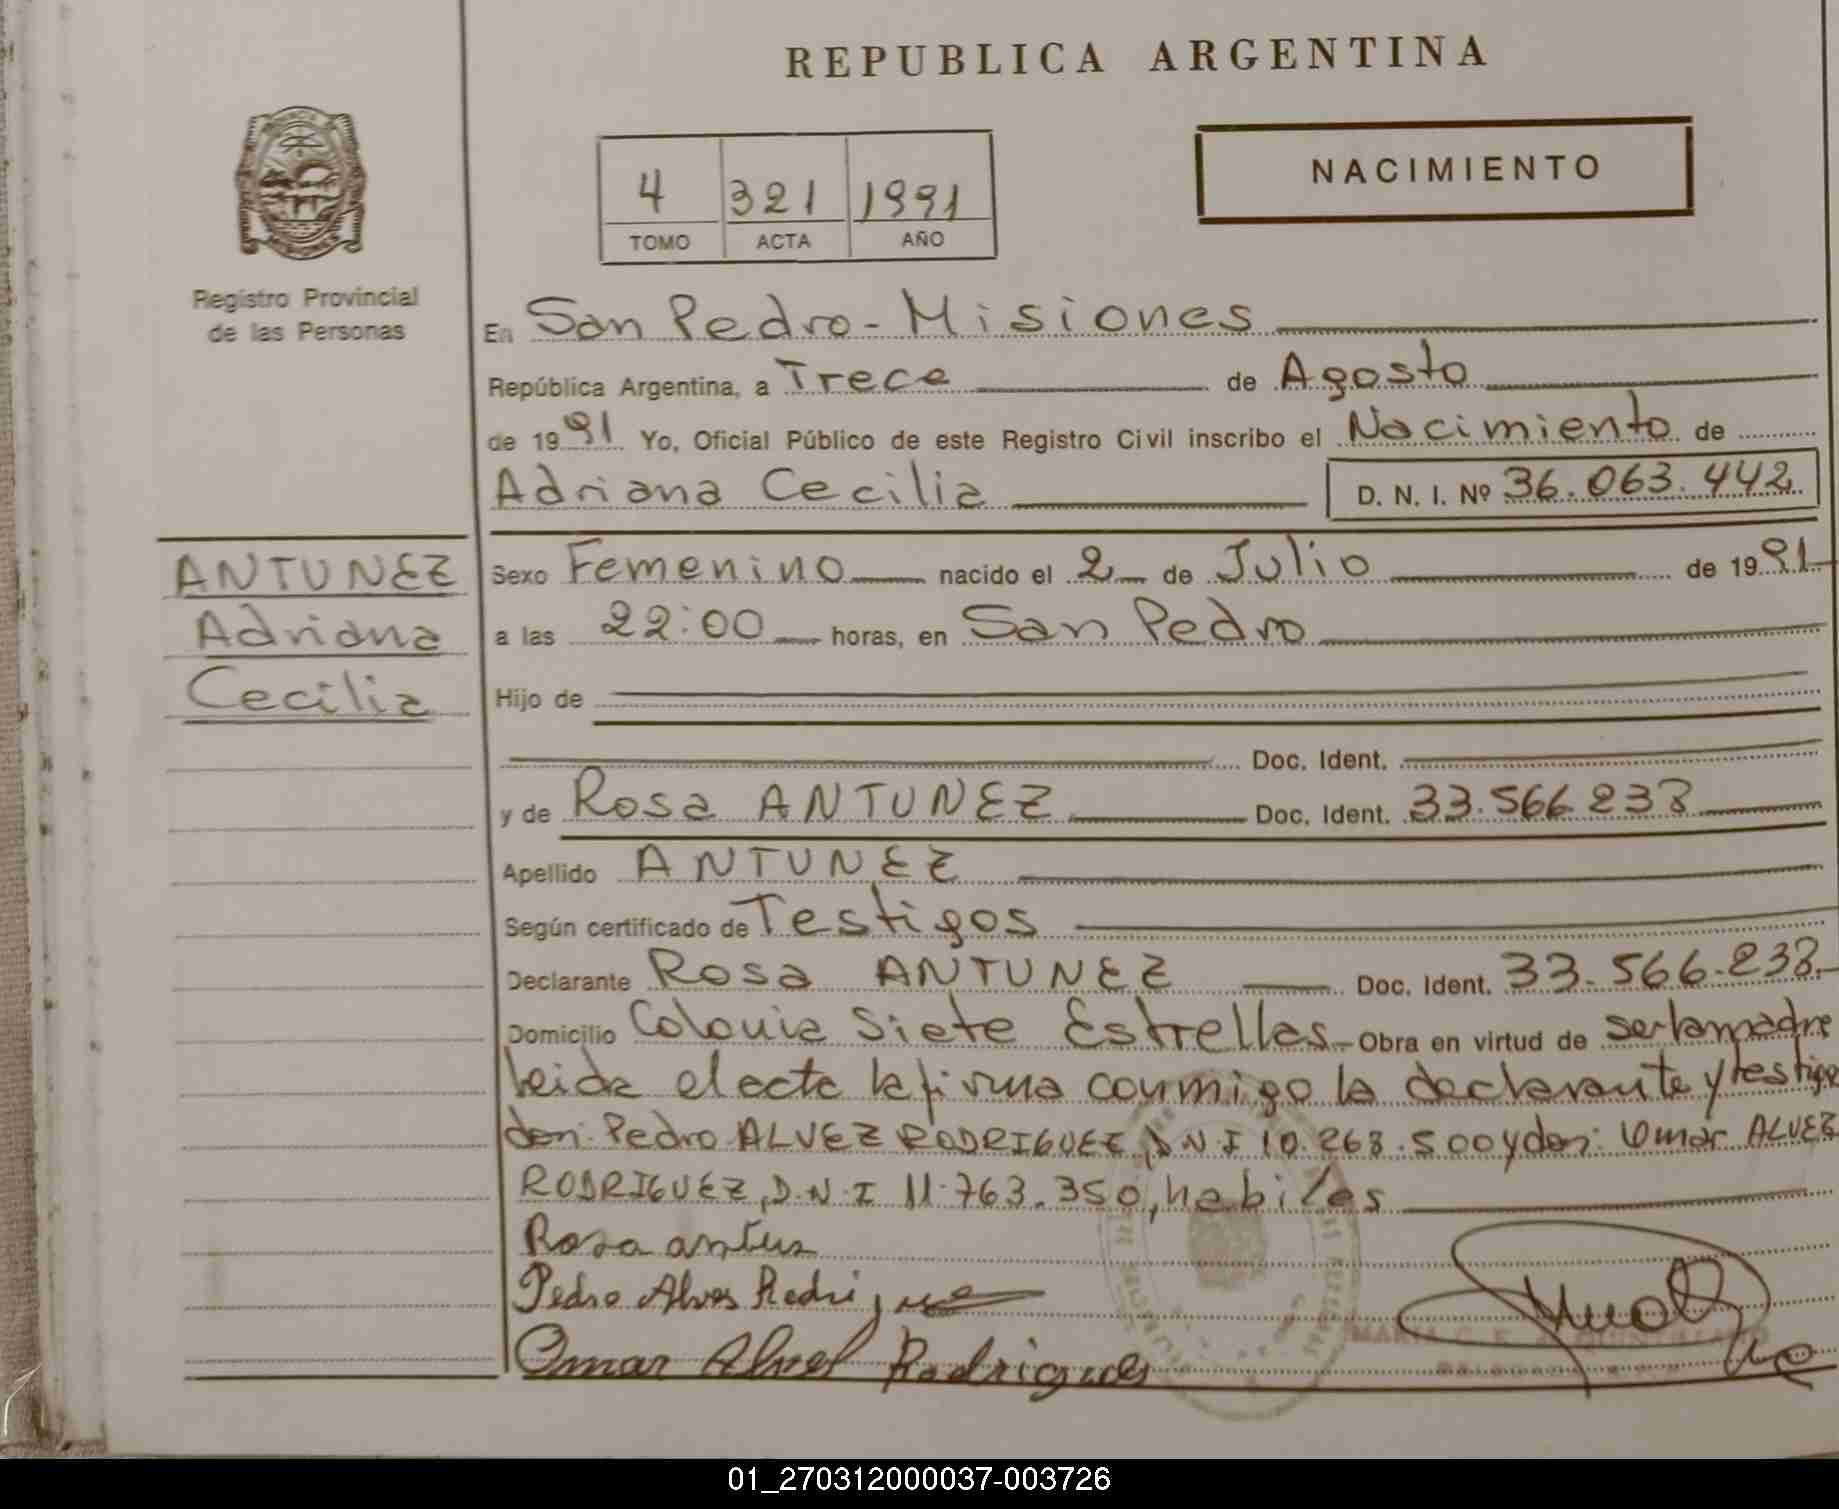 REPUBLICA ARGENTINA
NACIMIENTO
4 321 1991
TOMO ACTA AÑO
Registro Provincial
de las Personas
En San Pedro - Misiones
República Argentina, a Trece de Agosto
de 1991 Yo, Oficial Público de este Registro Civil inscribo el Nacimiento de
Adriana Cecilia D. N. I. Nº 36.063.442
ANTUNEZ
Adriana
Cecilia
Sexo Femenino nacido el 2 de Julio de 1991
a las 22:00 horas, en San Pedro
Hijo de
Doc. Ident.
y de Rosa ANTUNEZ Doc. Ident. 33.566.238
Apellido ANTUNEZ
Según certificado de Testigos
Declarante Rosa ANTUNEZ Doc. Ident. 33.566.238
Domicilio Colonia Siete Estrellas Obra en virtud de ser la madre
leida el acta la firma conmigo la declarante y testigo
don: Pedro ALVEZ RODRIGUEZ, D.N.I 10.268.500 y don: Omar ALVEZ
RODRIGUEZ, D.N.I 11.763.350, habiles
Rosa antuz
Pedro Alves Rodrigue
Omar Alvel Rodrigues
01_270312000037-003726